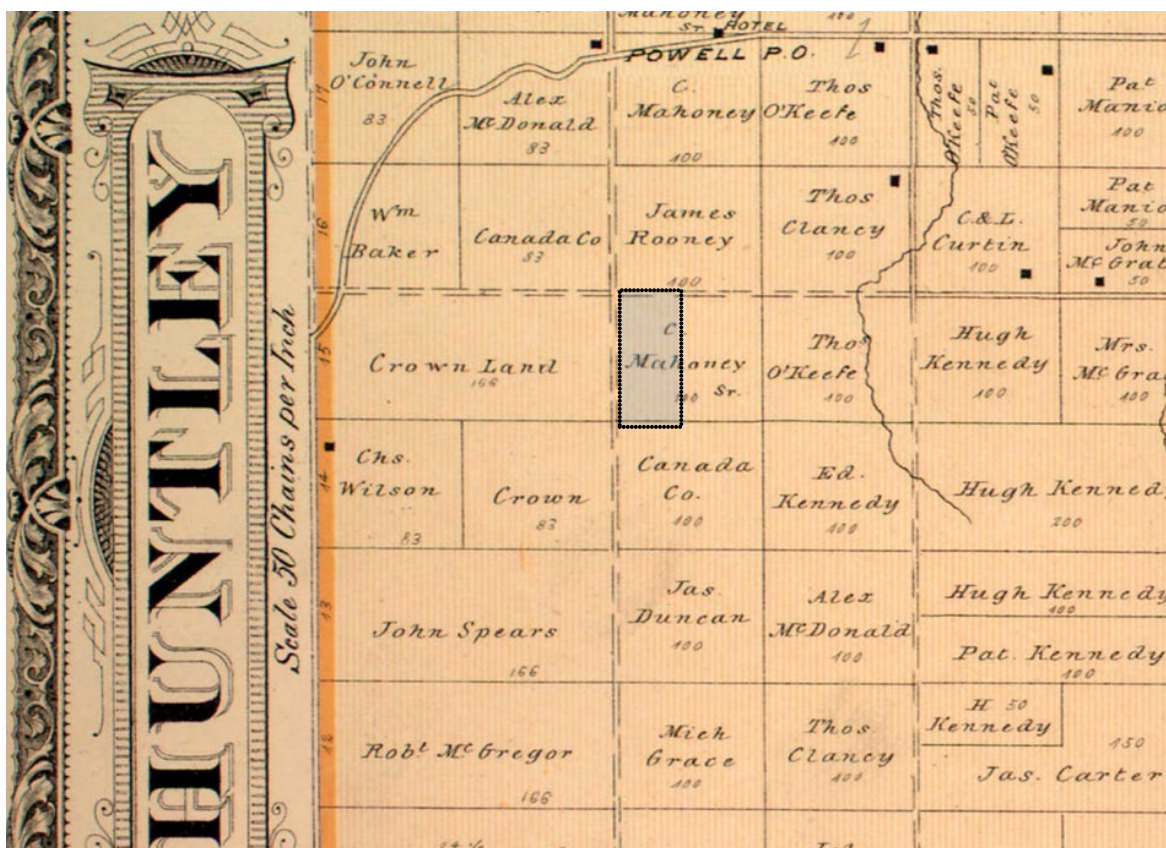 HUNTLEY
Scale 50 Chains per Inch
Mahoney
ST. HOTEL
POWELL P.O.
17
John
O'Connell
83
Alex
McDonald
83
C.
Mahoney
100
Thos
O'Keefe
100
Thos.
O'Keefe
50
Pat
O'Keefe
50
Pat
100
16
Wm
Baker
Canada Co
83
James
Rooney
100
Thos
Clancy
100
C.&L.
Curtin
100
Pat
50
John
50
15
Crown Land
166
C.
Mahoney
Sr.
100
Thos
O'Keefe
100
Hugh
Kennedy
100
Mrs.
100
14
Chs.
Wilson
83
Crown
83
Canada
Co.
100
Ed.
Kennedy
100
Hugh Kenned
200
13
John Spears
166
Jas.
Duncan
100
Alex
McDonald
100
Hugh Kennedy
100
Pat. Kennedy
100
12
Robt McGregor
166
Mich
Grace
100
Thos
Clancy
100
H 50
Kennedy
150
Jas. Carter